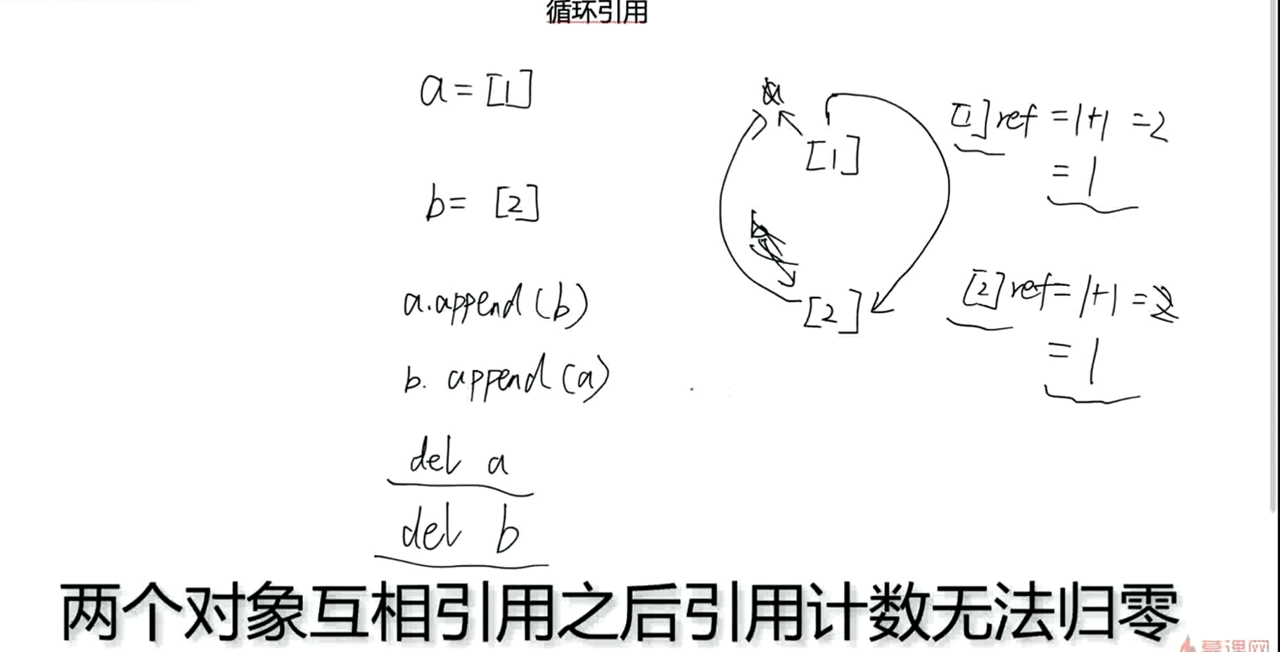 循环引用
a = [1]
b = [2]
a.append(b)
b. append(a)
del a
del b
a
[1]
b
[2]
[1] ref = 1+1 = 2
= 1
[2] ref = 1+1 = 2
= 1
两个对象互相引用之后引用计数无法归零
慕课网